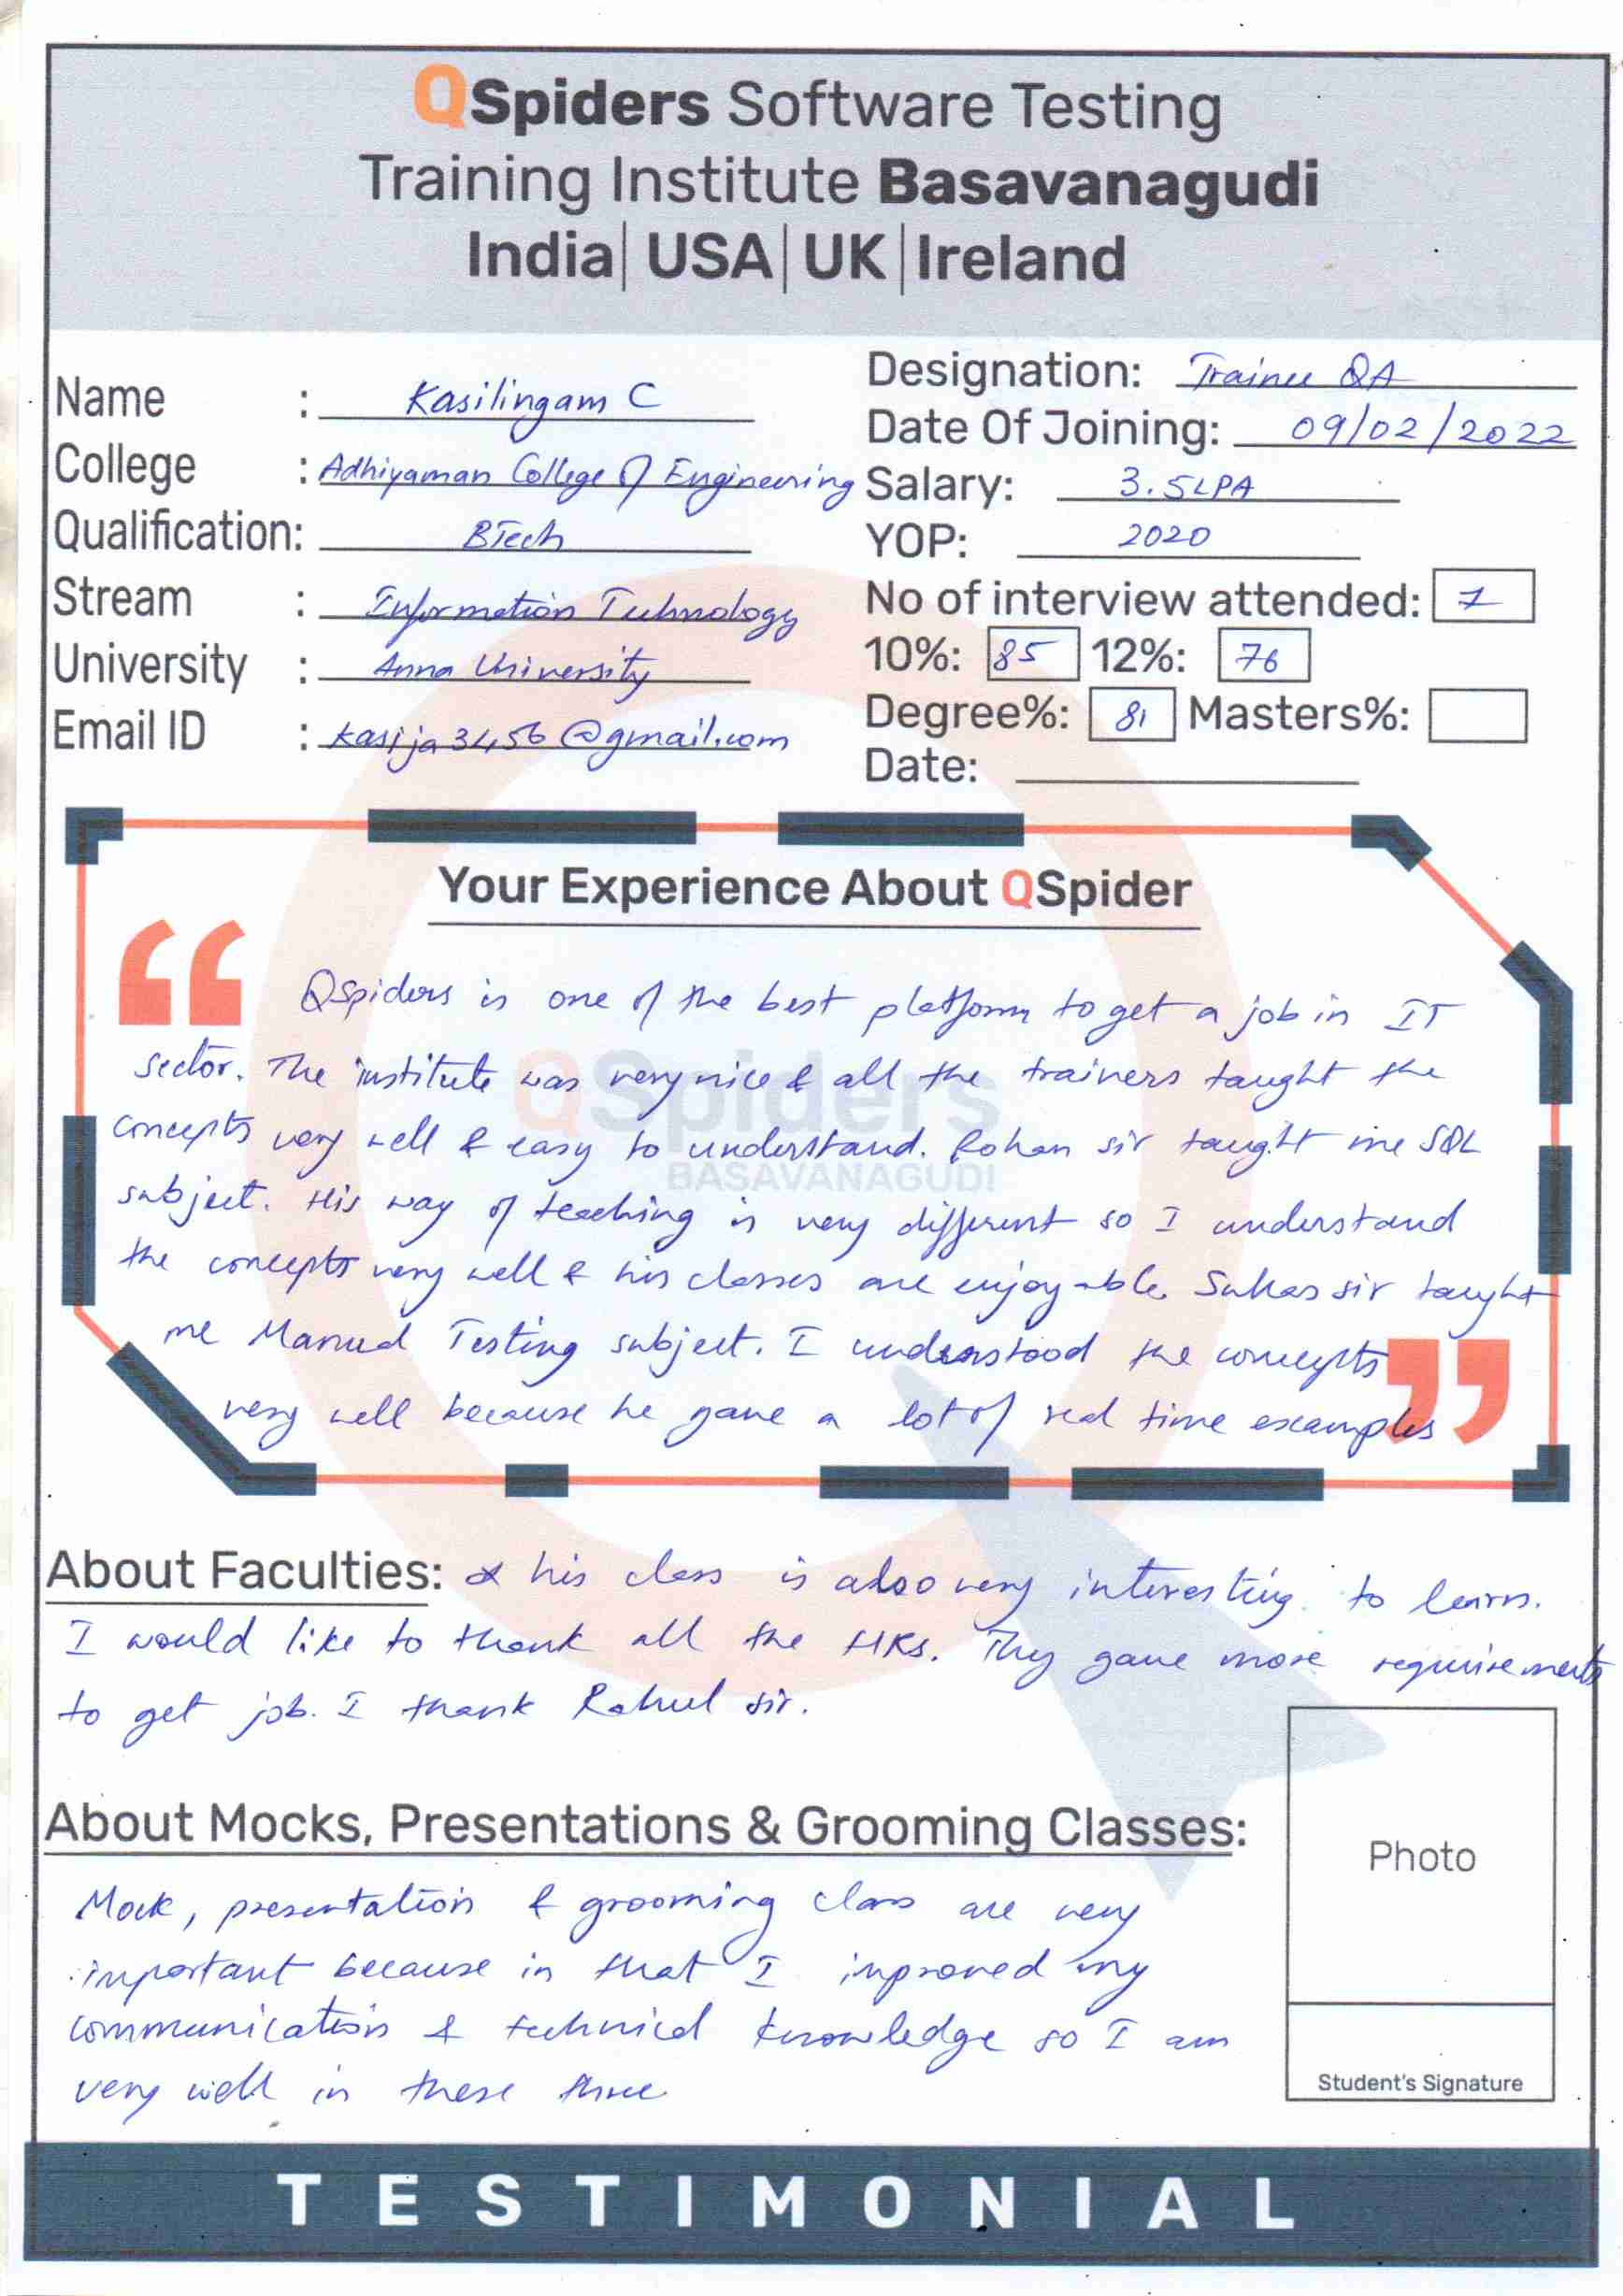 QSpiders Software Testing
Training Institute Basavanagudi
India| USA| UK |Ireland
Name : Kasilingam C
College : Adhiyaman College Of Engineering
Qualification: BTech
Stream : Information Technology
University : Anna University
Email ID : kasija3456@gmail.com
Designation: Trainee QA
Date Of Joining: 09/02/2022
Salary: 3.5LPA
YOP: 2020
No of interview attended:
10%: 85 12%: 76
Degree%: 81 Masters%:
Date:
Your Experience About QSpider
Qspiders is one of the best platform to get a job in IT
sector. The institute was very nice & all the trainers taught the
concepts very well & easy to understand. Rohan sir taught me SQL
subject. His way of teaching is very different so I understand
the concepts very well & his classes are enjoyable. Suhas sir taught
me Manual Testing subject. I understood the concepts
very well because he gave a lot of real time examples
QSpiders
BASAVANAGUDI
About Faculties: & his class is also very interesting. to learn.
I would like to thank all the HRs. They gave more requirements
to get job. I thank Rahul sir.
About Mocks, Presentations & Grooming Classes:
Mock, presentation & grooming class are very
important because in that I improved my
communication & technical knowledge so I am
very well in these three
Photo
Student's Signature
TESTIMONIAL